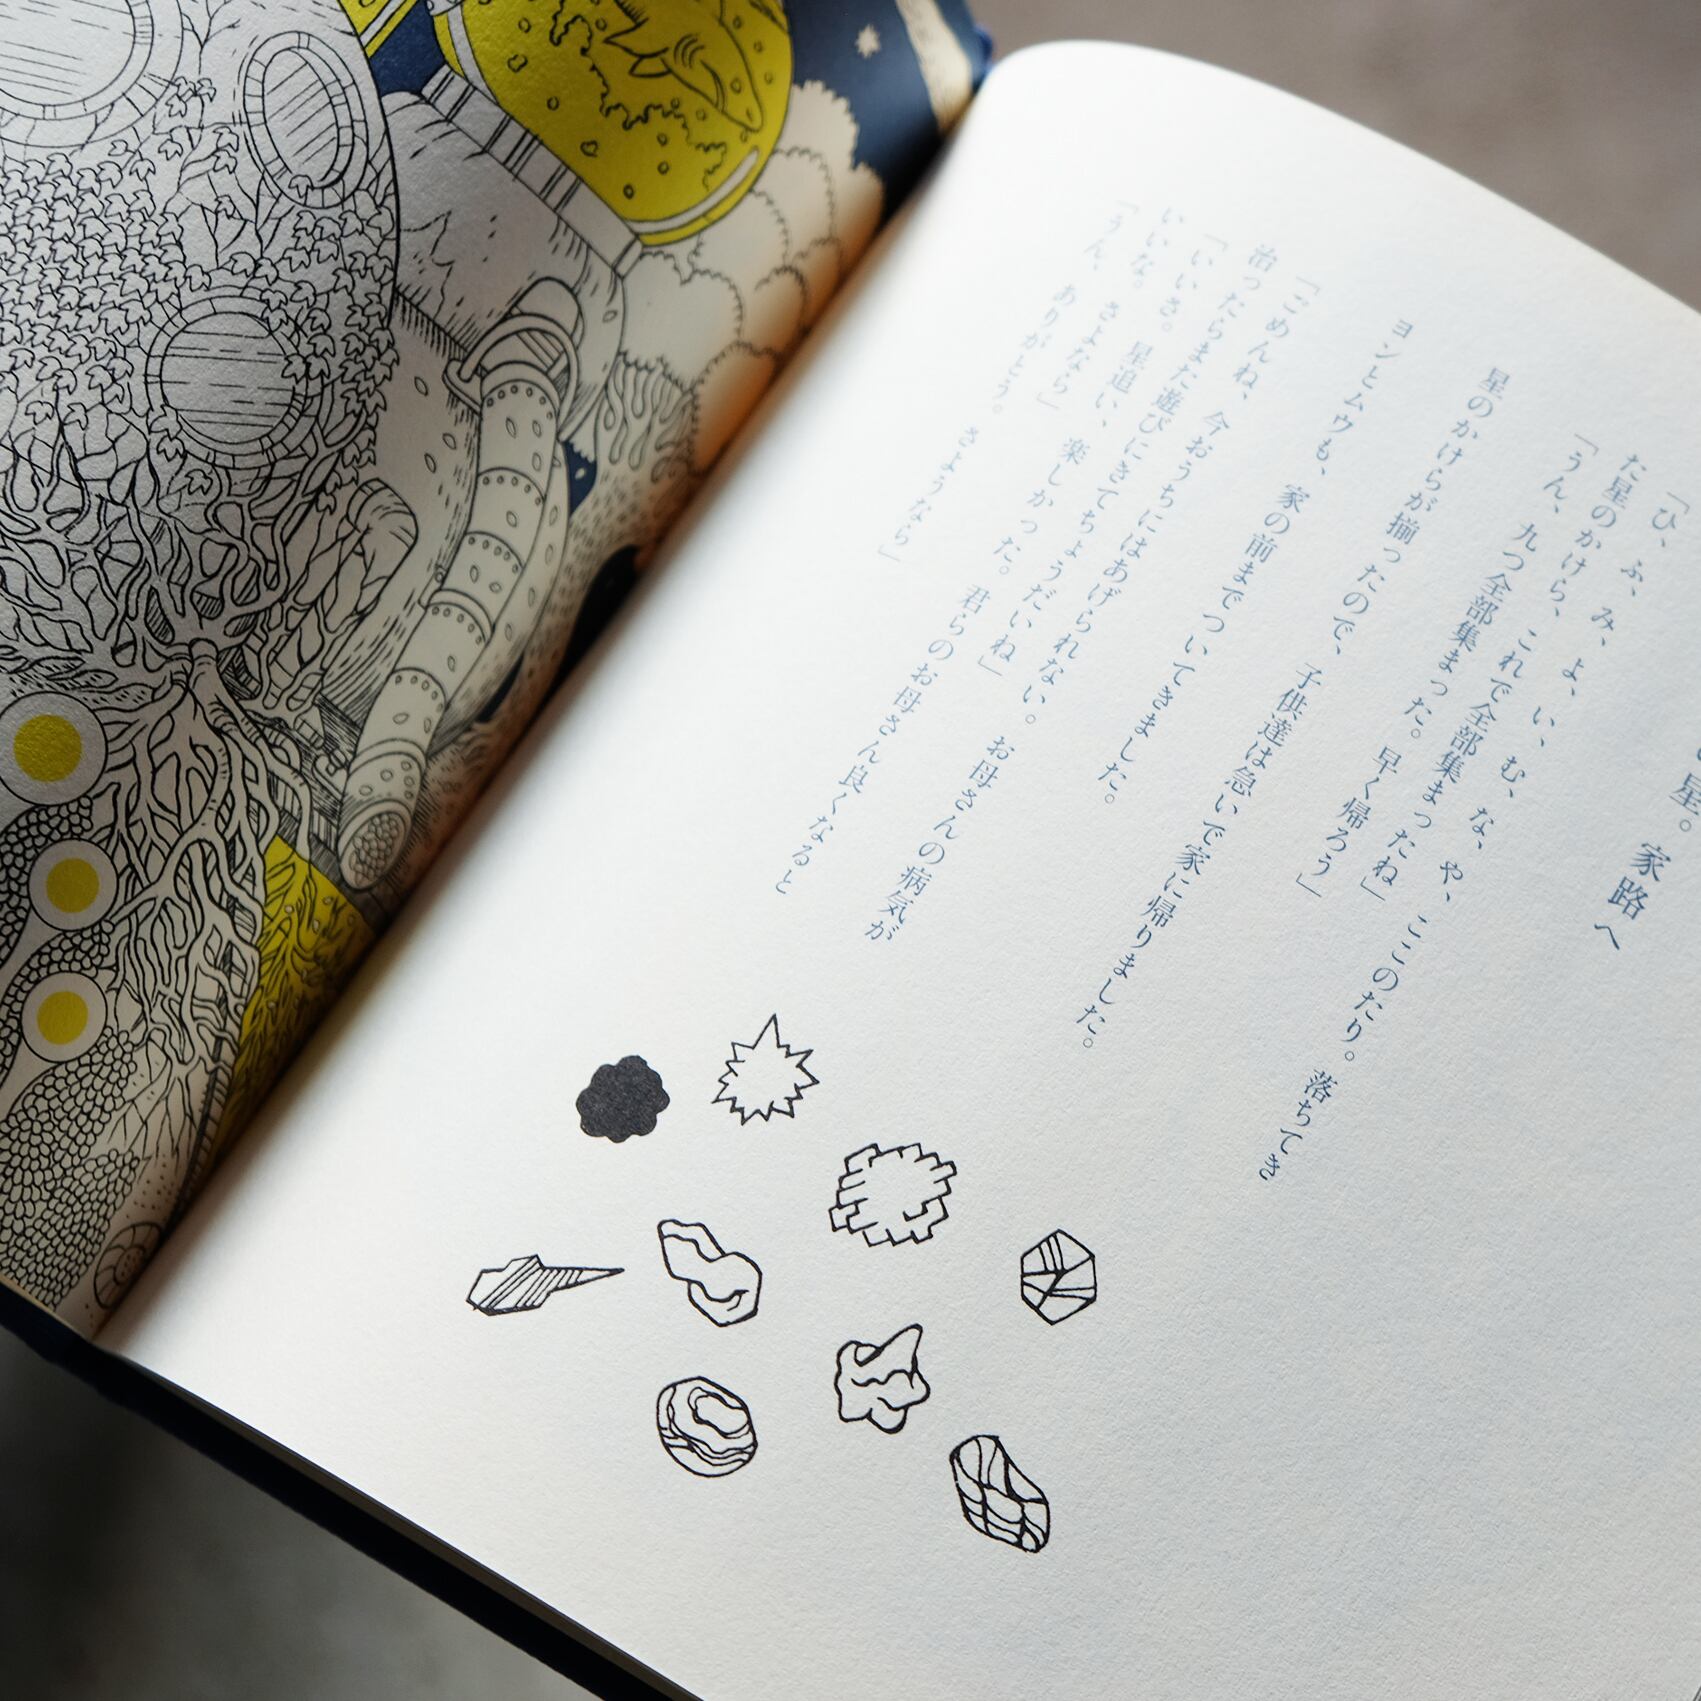 星。 家路へ
「ひ、ふ、み、よ、い、む、な、や、ここのたり。落ちてき
た星のかけら、これで全部集まったね」
「うん、九つ全部集まった。早く帰ろう」
星のかけらが揃ったので、子供達は急いで家に帰りました。
ヨンとムウも、家の前までついてきました。
「ごめんね、今おうちにはあげられない。お母さんの病気が
治ったらまた遊びにきてちょうだいね」
「いいさ。星追い、楽しかった。君らのお母さん良くなると
いいな。さよなら」
「うん、ありがとう。さようなら」